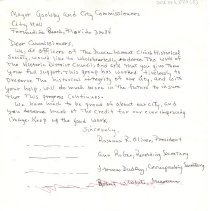 Mayor Goelsby and City Commissioners
City Hall
Fernandina Beach, Florida 32034
Dear Commissioners,
We, as officers of the Duncan Lamont Clinch Historical
Society, would like to wholeheartedly endorse the work of
the Historic District Council and ask that you give them
your full support. This group has worked tirelessly to
preserve the historical integrity of our city, and with
your help, will do much more in the future to insure
that this progress continues.
We have much to be proud of about our city, and
you deserve much of the credit for our ever improving
image. Keep up the good work.
Sincerely,
Thomas R. Oliver, President
Recording Secretary
Corresponding Secretary
Treasurer